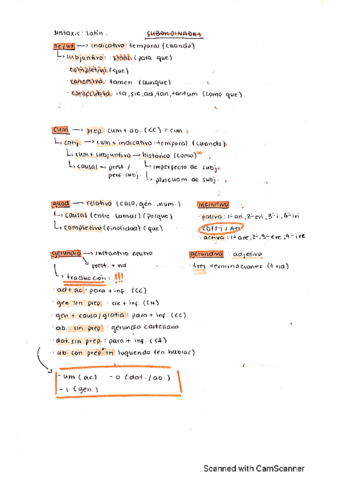 sintaxis · latín. SUBORDINADAS
ut → indicativo temporal (cuando)
↳ subjuntivo : final (para que)
· completiva (que)
· concesiva : tamen (aunque)
· consecutiva : ita, sic, ad, tan, tantum (como que)
cum → prep. cum + ab. (CC) = cum
↳ conj. → cum + indicativo → temporal (cuando).
↳ cum + subjuntivo → histórico (como)
↳ causal → prest. / imperfecto de subj.
perf. subj. pluscuam de subj.
quod → relativo (caso, gén. num.)
↳ causal (entre comas) (porque)
↳ completivo (finalidad) (que)
infinitivo
· pasiva : 1ª ari, 2ª eri, 3ª i, 4ª iri
· activa : 1ª are, 2ª, 3ª ere, 4ª ire
gerundio → sustantivo neutro
↳ prest. + nd
↳ traducción : !!!
· ad + ac : para + inf (CC)
· gen sin prep. : de + inf (CN)
· gen + causa/gratia : para + inf (CC)
· ab. sin prep : gerundio castellano
· dat. sin prep : para + inf. (CI)
· ab. con prep in loquendo (en hablar)
gerundivo : adjetivo
· tres terminaciones (+ nd)
- um (ac) - o (dat./ab.)
- i (gen.)
Scanned with CamScanner